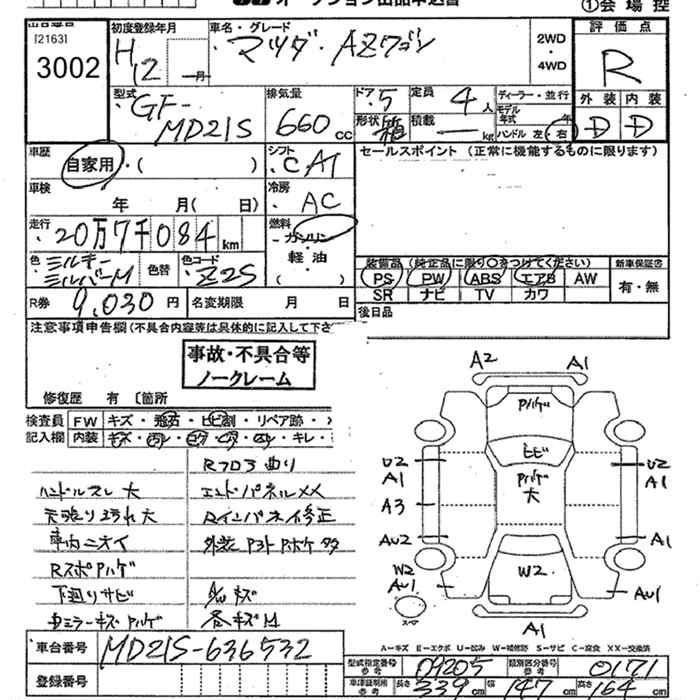 出品番号
[2163]
3002
初度登録年月
H12 年 月
車名・グレード
マツダ・AZワゴン
2WD
・
4WD
①会場控
評価点
R
外装 内装
D D
型式
GF-
MD21S
排気量
660 cc
ドア 5
形状 箱
定員 4 人
積載 — kg
ディーラー・並行
モデル
年式 年
ハンドル 左・右
車歴
自家用・( )
シフト
CAT
セールスポイント (正常に機能するものに限ります)
車検
年 月( 日)
冷房
AC
走行
20万7千084 km
燃料
ガソリン
軽油
( )
色
ミルキー
シルバーM
色替
色コード
Z2S
装備品 (純正品に限り○をつけてください)
PS PW ABS エアB AW
SR ナビ TV カワ
新車保証書
有・無
R券 9,030 円
名変期限 月 日
後日品
注意事項申告欄(不具合内容等は具体的に記入して下さ
事故・不具合等
ノークレーム
修復歴 有 〔箇所
検査員
記入欄
FW キズ・飛石・ヒビ割・リペア跡・
内装 キズ・
キレ・
Rフロア曲り
ハンドルスレ大
エンドパネルXX
天張り汚れ大
Rインパネイ修正
車内ニオイ
Rスポハゲ
下廻りサビ
A/Wキズ
各キズM
A2 A1
ヒビ
大
W2
U2
A1
A3
AU2
W2
AU1
スペア
U2
A1
A1
AU1
A1
A=キズ E=エクボ U=凹み W=補修跡 S=サビ C=腐食 XX=交換済
車台番号 MD21S-636532
登録番号
型式指定番号
参考
09205
類別区分番号
参考
0171
車庫証明用
参考
長さ 339 cm 幅 147 cm 高さ 164 cm